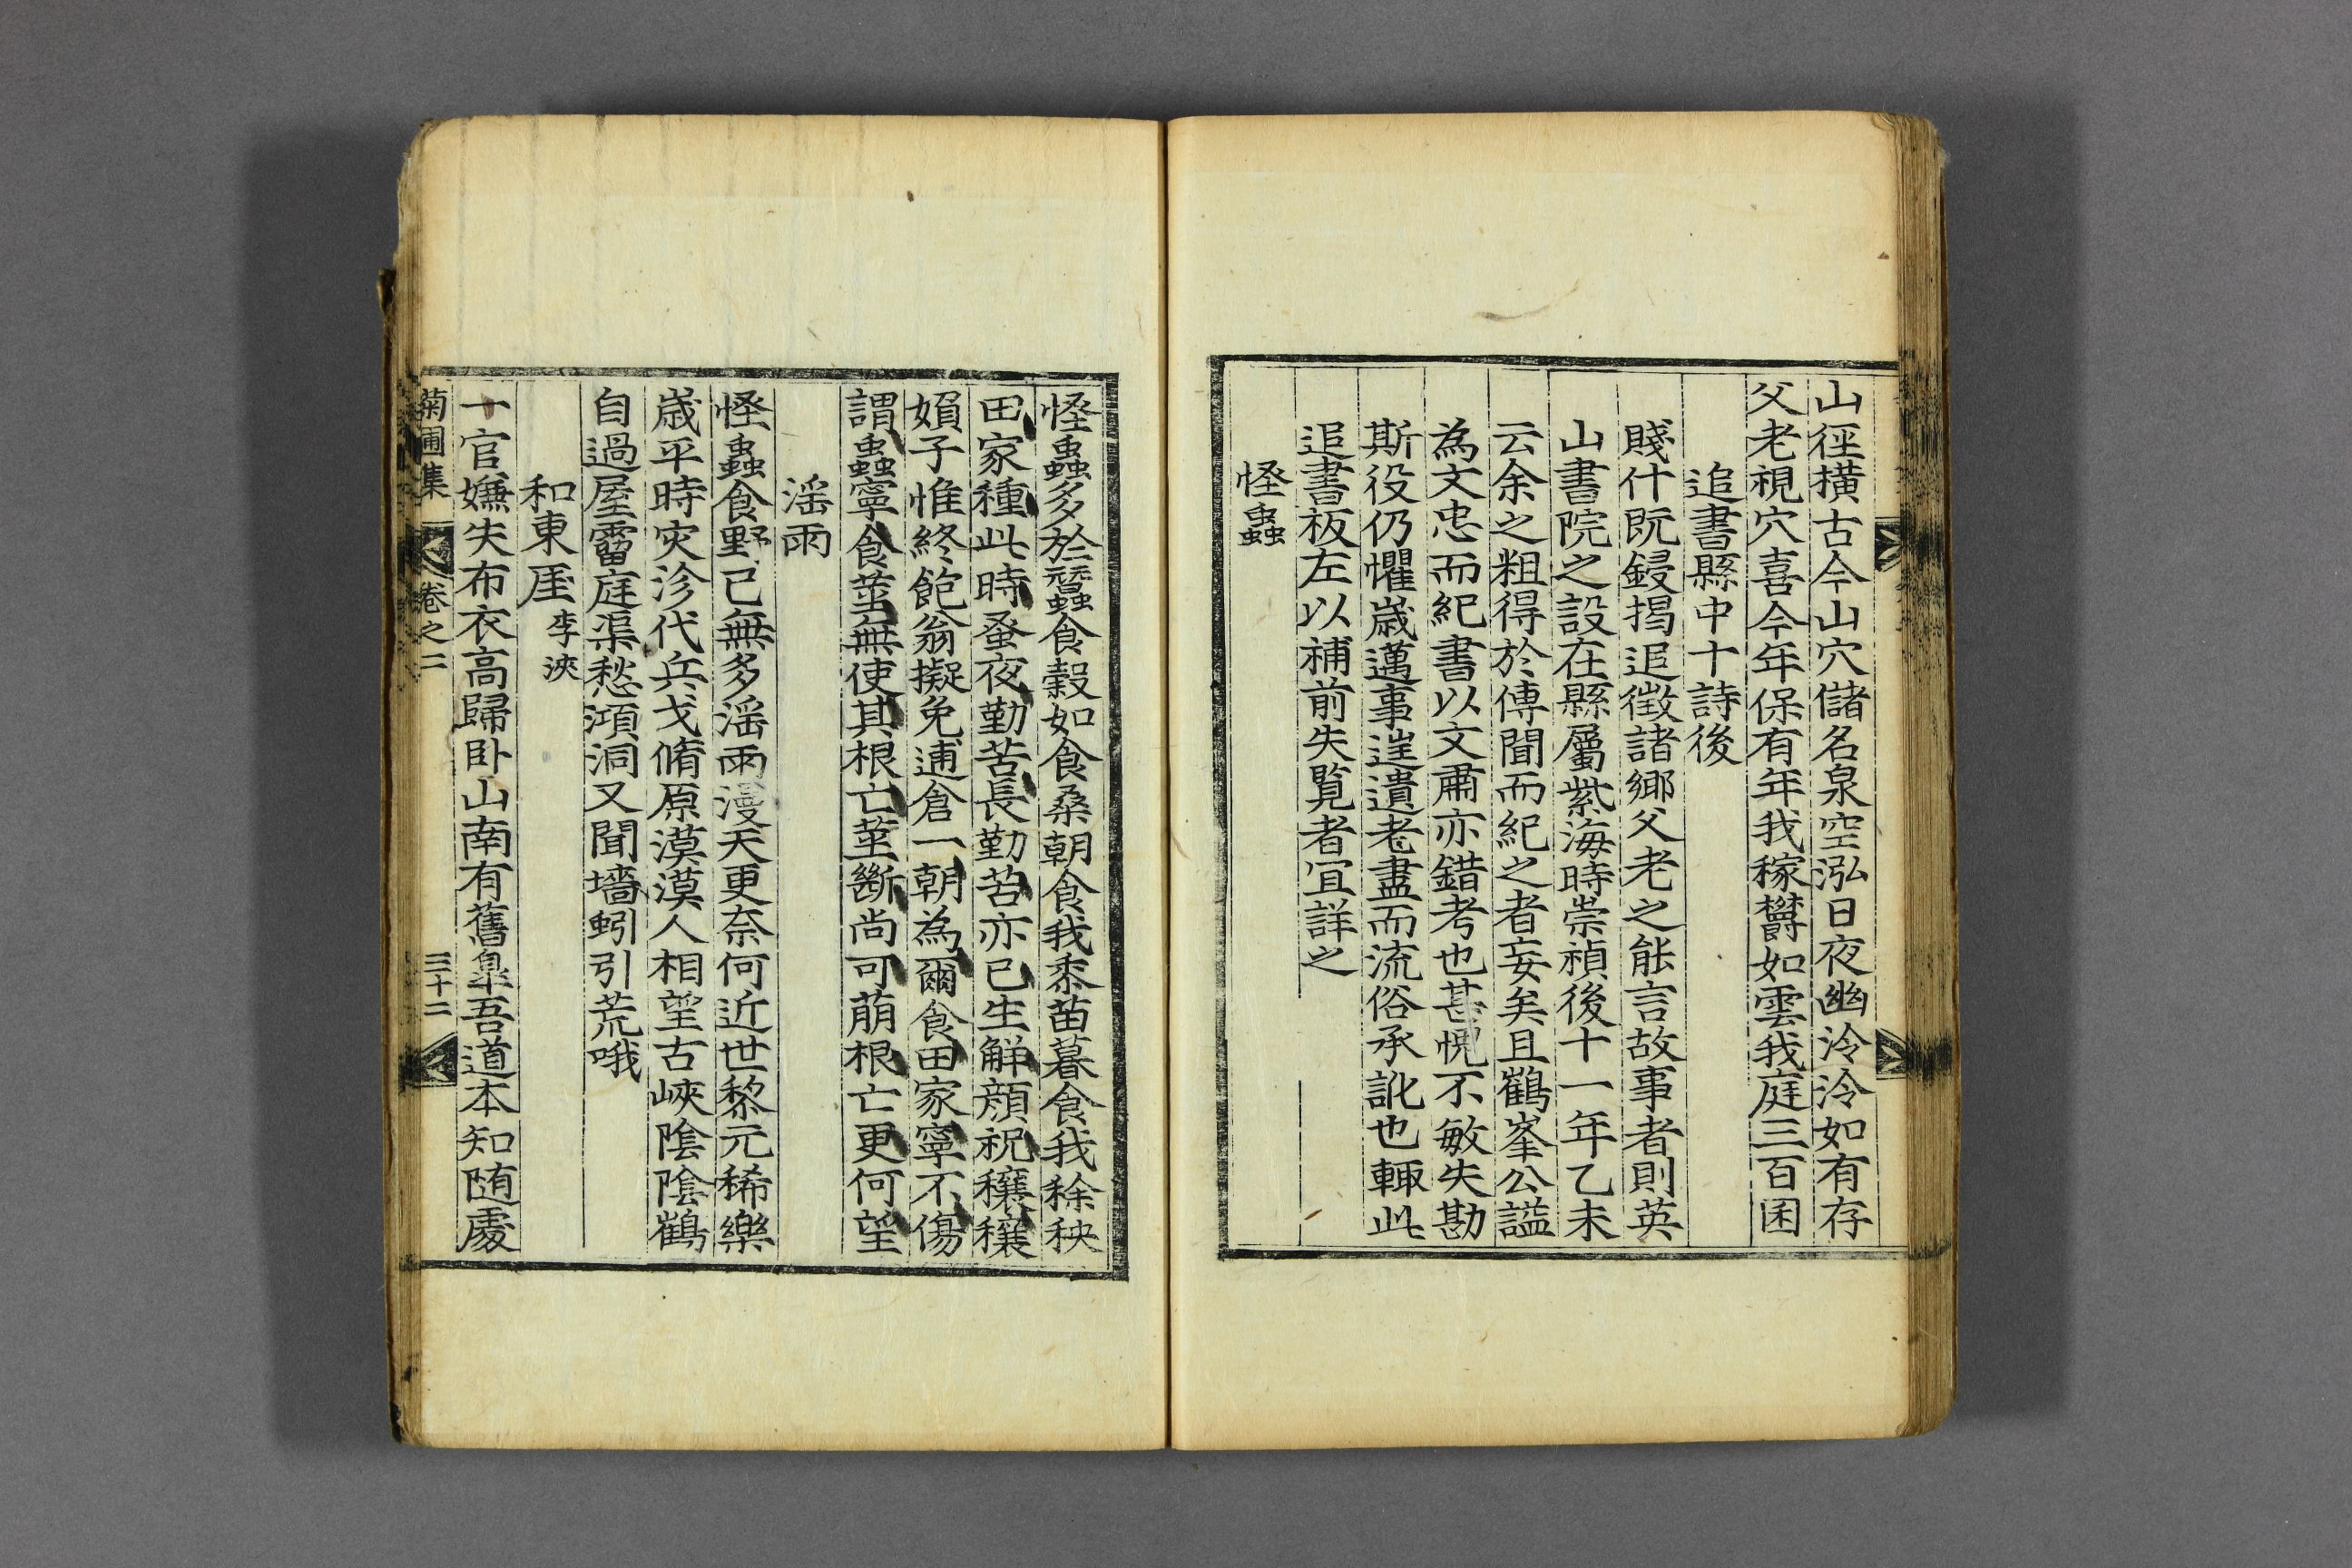 山徑横古今山穴儲名泉空泓日夜幽泠泠如有存
父老視穴喜今年保有年我稼欝如雲我庭三百囷
追書縣中十詩後
賤什旣鋟揭追徵諸鄉父老之能言故事者則英
山書院之設在縣屬紫海時崇禎後十一年乙未
云余之粗得於傳聞而紀之者妄矣且鶴峯公謚
為文忠而紀書以文肅亦錯考也甚愧不敏失勘
斯役仍懼歲邁事逞遺耄盡而流俗承訛也輙此
追書板左以補前失覧者宜詳之
怪蟲
怪蟲多於蠶食穀如食桑朝食我黍苗暮食我稌秧
田家種此時蚤夜勤苦長勤苦亦已生觧顔祝穰穰
媍子惟終飽翁擬免逋倉一朝為爾食田家寧不傷
謂蟲寧食莖無使其根亡莖斷尚可萌根亡更何望
滛雨
怪蟲食野已無多滛雨漫天更奈何近世黎元稀樂
歲平時灾沴代兵戈脩原漠漠人相望古峽隂隂鶴
自過屋霤庭渠愁澒洞又聞墻蚓引荒哦
和東厓李浹
一官嫌失布衣高歸卧山南有舊臯吾道本知随處
菊圃集 卷之二 三十二